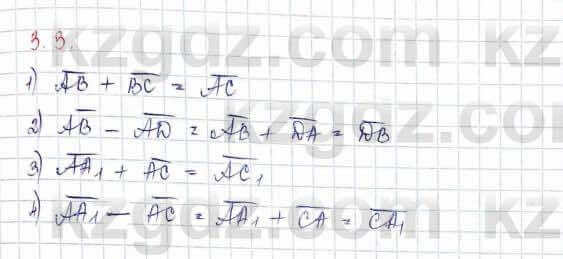 3.3.
1) A̅B̅ + B̅C̅ = A̅C̅
2) A̅B̅ - A̅D̅ = A̅B̅ + D̅A̅ = D̅B̅
3) A̅A̅₁ + A̅C̅ = A̅C̅₁
4) A̅A̅₁ - A̅C̅ = A̅A̅₁ + C̅A̅ = C̅A̅₁
kzgdz.com